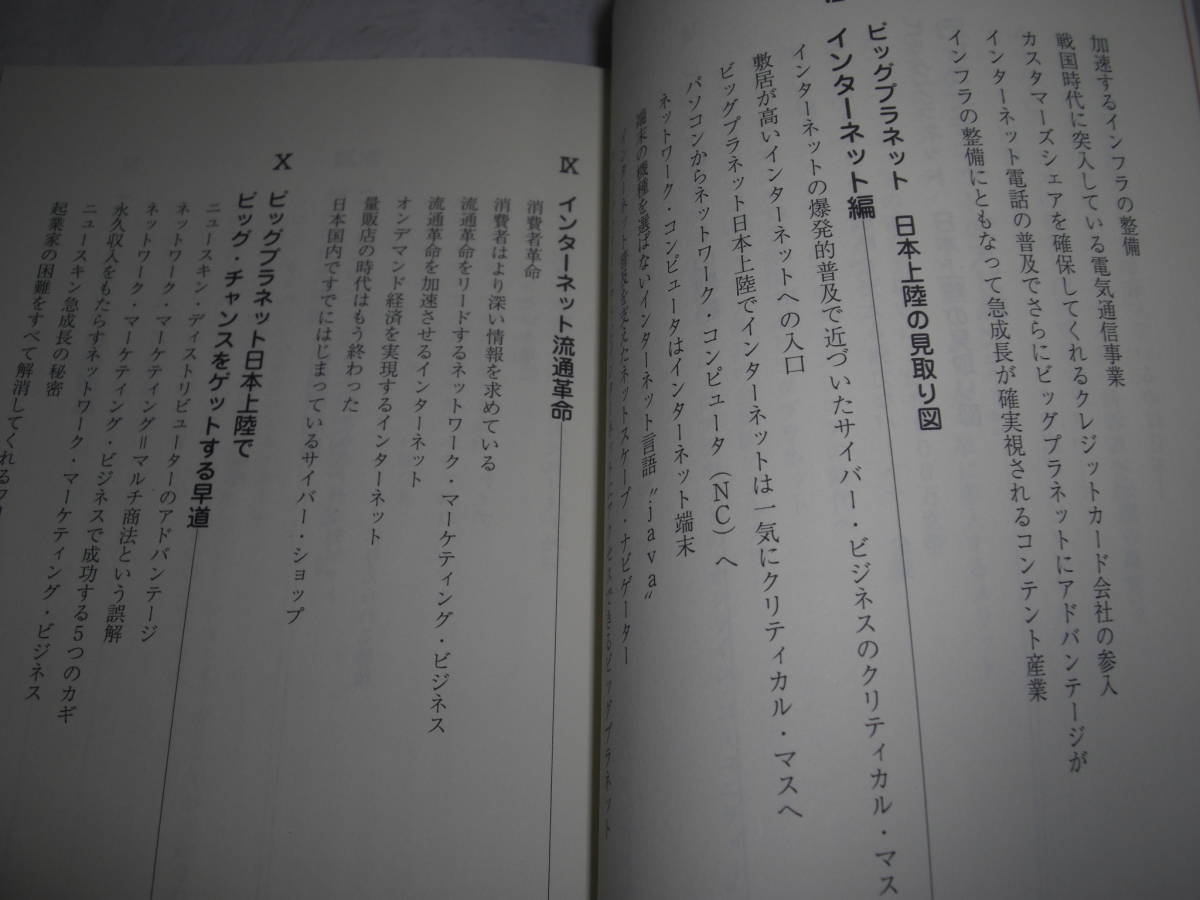 加速するインフラの整備
戦国時代に突入している電気通信事業
カスタマーズシェアを確保してくれるクレジットカード会社の参入
インターネット電話の普及でさらにビッグプラネットにアドバンテージが
インフラの整備にともなって急成長が確実視されるコンテント産業
ビッグプラネット 日本上陸の見取り図
インターネット編
インターネットの爆発的普及で近づいたサイバー・ビジネスのクリティカル・マス
敷居が高いインターネットへの入口
ビッグプラネット日本上陸でインターネットは一気にクリティカル・マスへ
パソコンからネットワーク・コンピュータ(NC)へ
ネットワーク・コンピュータはインターネット端末
端末の機種を選ばないインターネット言語“java”
インターネット普及をささえたネットスケープ・ナビゲーター
アクセスできるビッグプラネット
Ⅸ インターネット流通革命
消費者革命
消費者はより深い情報を求めている
流通革命をリードするネットワーク・マーケティング・ビジネス
流通革命を加速させるインターネット
オンデマンド経済を実現するインターネット
量販店の時代はもう終わった
日本国内ですでにはじまっているサイバー・ショップ
Ⅹ ビッグプラネット日本上陸で
ビッグ・チャンスをゲットする早道
ニュースキン・ディストリビューターのアドバンテージ
ネットワーク・マーケティング=マルチ商法という誤解
永久収入をもたらすネットワーク・マーケティング・ビジネス
ニュースキン急成長の秘密
ネットワーク・マーケティング・ビジネスで成功する5つのカギ
起業家の困難をすべて解消してくれる